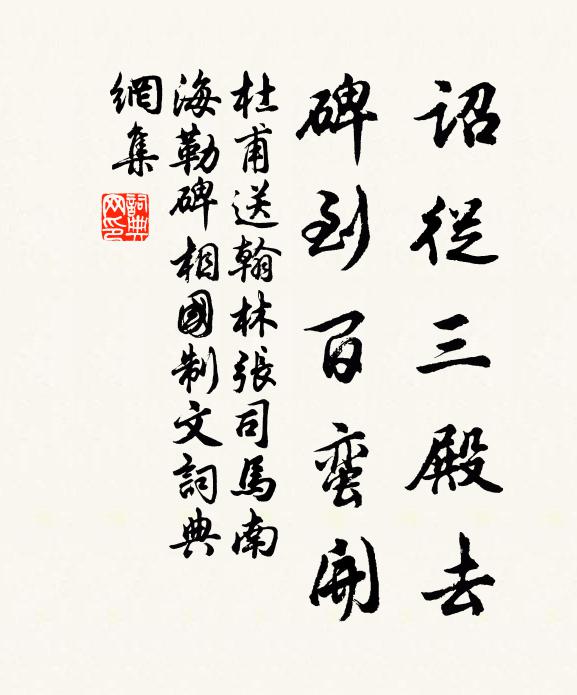 詔從三殿去
碑到百蠻開
杜甫送翰林張司馬南
海勒碑相國制文詞典
網集
詞典
网印